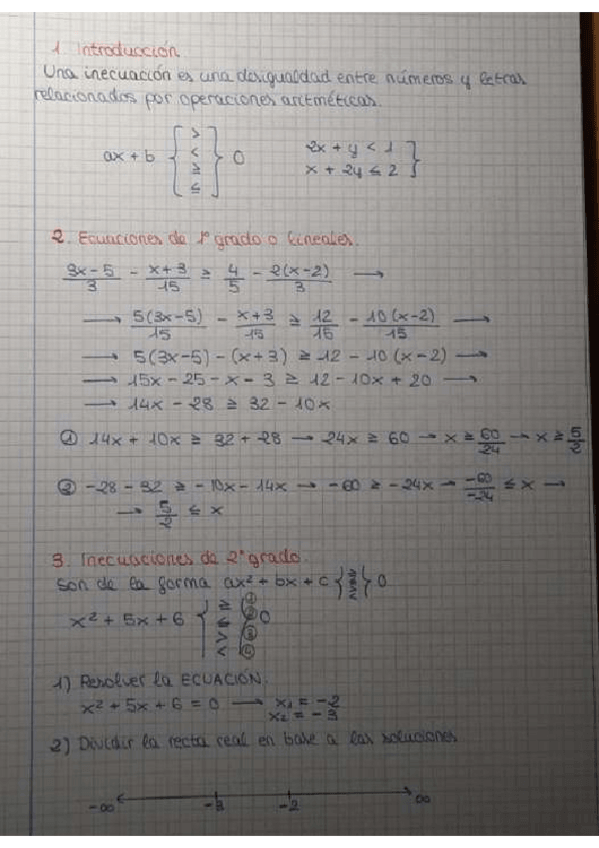 1. Introducción.
Una inecuación es una desigualdad entre números y letras
relacionados por operaciones aritméticas.
ax + b { > < ≥ ≤ } 0
2x + y < 1
x + 2y ≤ 2 }
2. Ecuaciones de 1º grado o lineales.
(3x-5)/3 - (x+3)/15 ≥ 4/5 - 2(x-2)/3 →
→ 5(3x-5)/15 - (x+3)/15 ≥ 12/15 - 10(x-2)/15 →
→ 5(3x-5) - (x+3) ≥ 12 - 10(x-2) →
→ 15x - 25 - x - 3 ≥ 12 - 10x + 20 →
→ 14x - 28 ≥ 32 - 10x
① 14x + 10x ≥ 32 + 28 → 24x ≥ 60 → x ≥ 60/24 → x ≥ 5/2
② -28 - 32 ≥ -10x - 14x → -60 ≥ -24x → -60/-24 ≤ x →
→ 5/2 ≤ x
3. Inecuaciones de 2º grado.
Son de la forma ax² + bx + c { } 0
x² + 5x + 6 { ≥ ① ≤ ② > ③ < ④ 0
1) Resolver la ECUACIÓN.
x² + 5x + 6 = 0 → x₁ = -2
x₂ = -3
2) Dividir la recta real en base a las soluciones
-∞ -3 -2 ∞